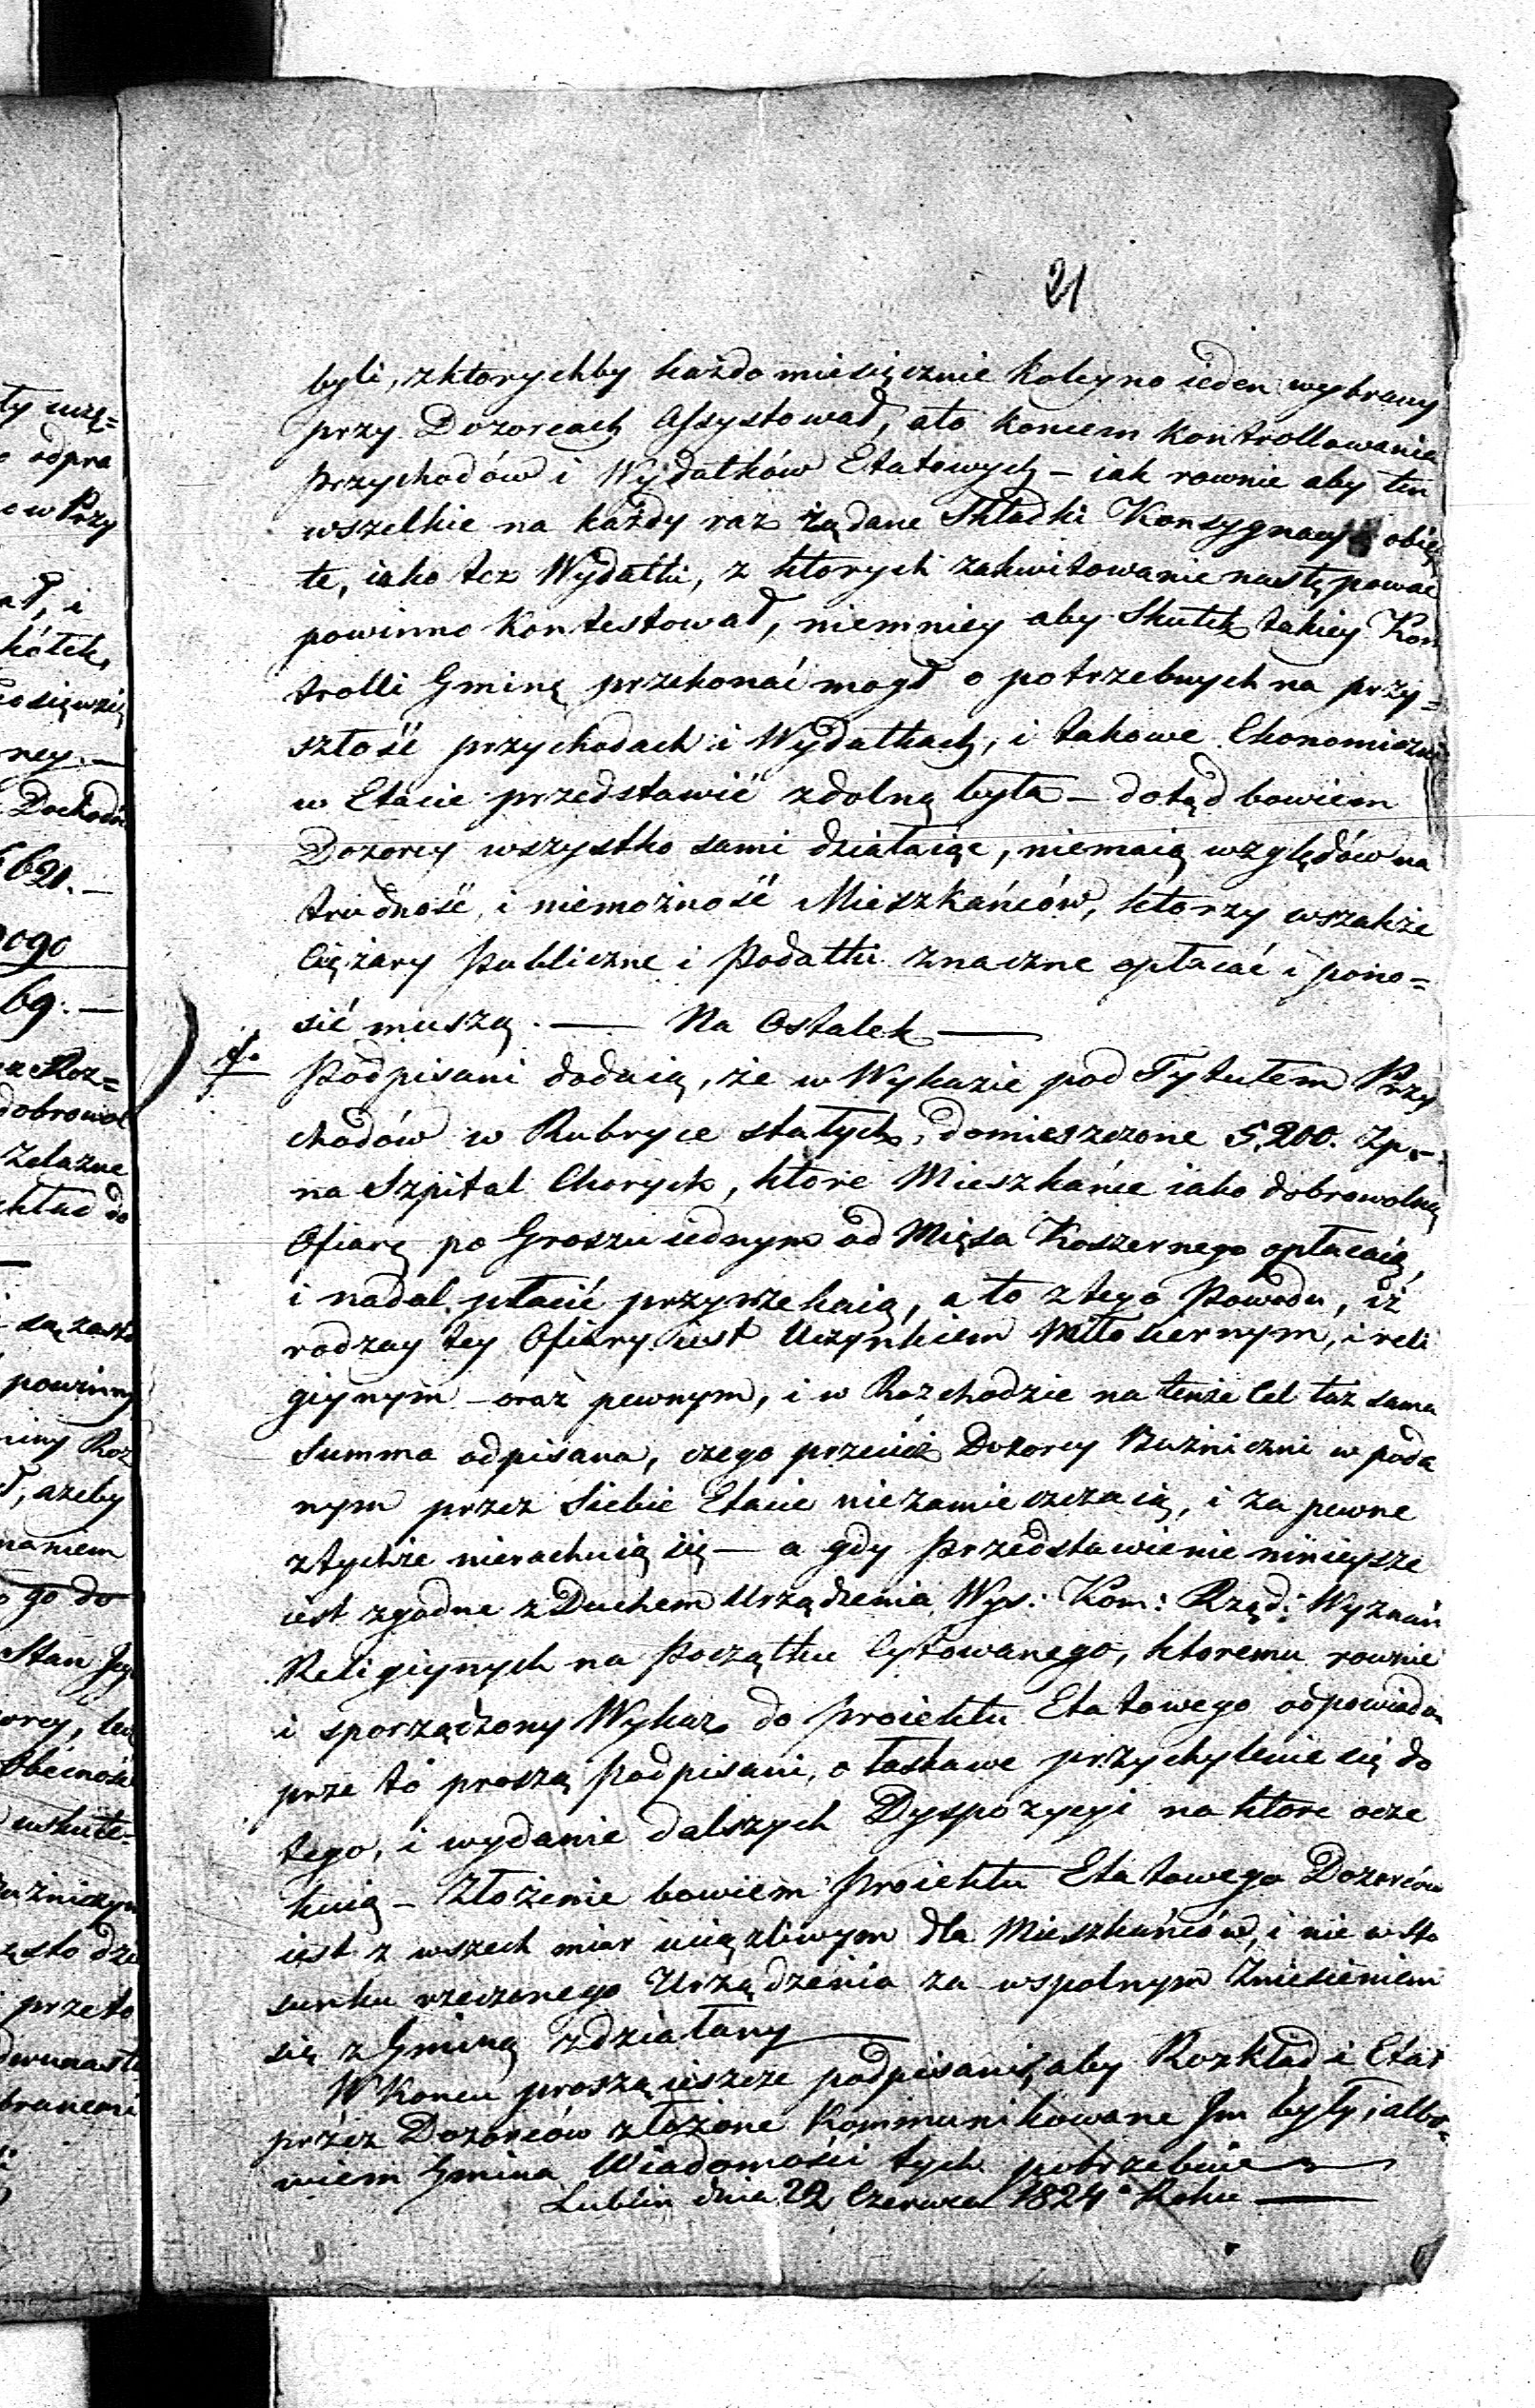 21
byli, z ktorychby każdo miesięcznie koleyno ieden wybrany
przy Dozorcach Assystował, a to koncem kontrollowania
Przychodów i Wydatków Etatowych – iak rownie aby ten
wszelkie na każdy raz żądane Składki Konsygnacyą obię
te, iako tez Wydatki, z ktorych zakwitowanie następować
powinno Kontestował, niemniey aby Skutek takiey Kon
trolli Gminę przekonać mogł o potrzebnych na przy=
szłość przychodach i Wydatkach, i takowe Ekonomicznie
w Etacie przedstawić zdolną była – dotąd bowiem
Dozorcy wszystko sami działaiąc, niemaią względów na
trudność, i niemożność Mieszkańców, ktorzy wszakże
Ciężary Publiczne i Podatki znaczne opłacać i pono=
sić muszą. — Na Ostatek —
Podpisani dodaią, że w Wykazie pod Tytułem Przy
chodów w Rubryce stałych, domieszczone 5,200. Zp. –
na Szpital Chorych, które Mieszkańce iako dobrowolną
Ofiarę po Groszu iednym od Mięsa Koszernego opłacaią,
i nadal płacić przyrzekaią, a to z tego Powodu, iż
rodzay tey Ofiary iest Uczynkiem Miłosiernym, i reli
giynym – oraz pewnym, i w Rozchodzie na tenże Cel taż sama
Summa odpisana, czego przecież Dozorcy Bużniczni w poda
nym przez Siebie Etacie niezamieszczaią, i za pewne
z tychże nierachuią się — a gdy Przedstawienie ninieysze
iest zgodne z Duchem Urządzenia Wys: Kom: Rząd: Wyznań
Religiynych na Początku Cytowanego, ktoremu rownie
i sporządzony Wykaz do Proiektu Etatowego odpowiada
prze to proszą Podpisani, o łaskawe przychylenie się do
tego, i wydanie dalszych Dyspozycyi na ktore ocze
kuią – Złożenie bowiem Proiektu Etatowego Dozorców
iest z wszech miar uciążliwym dla Mieszkańców, i nie w sto
sunku rzeczonego Urządzenia za wspolnym Zniesieniem
się z Gminą zdziałany —
W Koncu proszą ieszcze podpisani, aby Rozkład i Etat
przez Dozorców złożone Kommunikowane Im były, albo=
wiem Gmina Wiadomości tych potrzebuie —
Lublin dnia 22 Czerwca 1824 Roku —